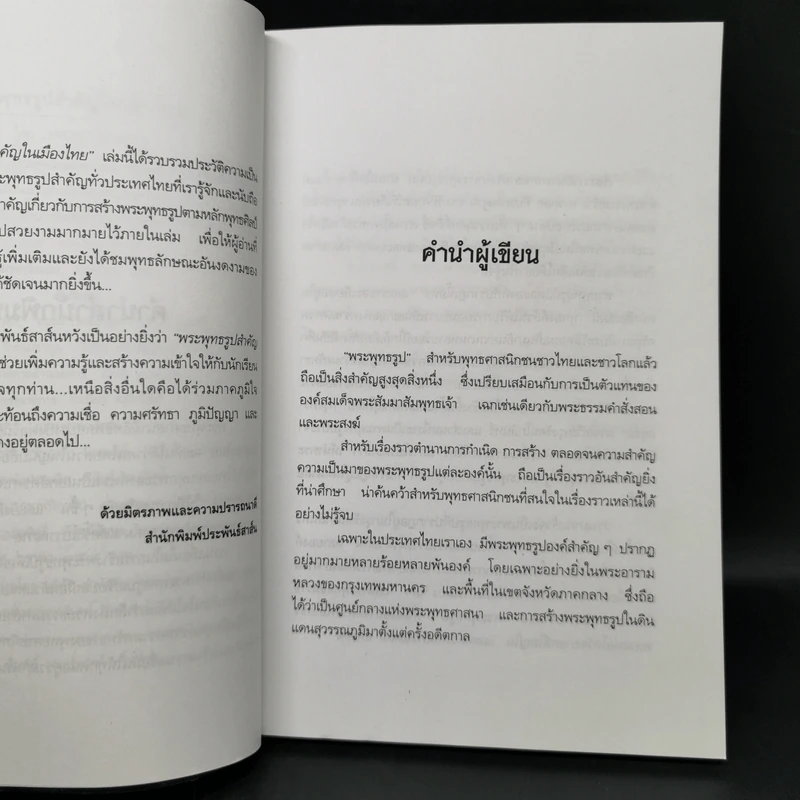 คัญในเมืองไทย" เล่มนี้ได้รวบรวมประวัติความเป็น
ะพุทธรูปสำคัญทั่วประเทศไทยที่เรารู้จักและนับถือ
ำคัญเกี่ยวกับการสร้างพระพุทธรูปตามหลักพุทธศิลป์
ปสวยงามมากมายไว้ภายในเล่ม เพื่อให้ผู้อ่านที่
รู้เพิ่มเติมและยังได้ชมพุทธลักษณะอันงดงามของ
ด้ชัดเจนมากยิ่งขึ้น...
พันธ์สาส์นหวังเป็นอย่างยิ่งว่า "พระพุทธรูปสำคัญ
ช่วยเพิ่มความรู้และสร้างความเข้าใจให้กับนักเรียน
จทุกท่าน...เหนือสิ่งอื่นใดคือได้ร่วมภาคภูมิใจ
ะท้อนถึงความเชื่อ ความศรัทธา ภูมิปัญญา และ
งอยู่ตลอดไป...
ด้วยมิตรภาพและความปรารถนาดี
สำนักพิมพ์ประพันธ์สาส์น
คำนำผู้เขียน
"พระพุทธรูป" สำหรับพุทธศาสนิกชนชาวไทยและชาวโลกแล้ว
ถือเป็นสิ่งสำคัญสูงสุดสิ่งหนึ่ง ซึ่งเปรียบเสมือนกับการเป็นตัวแทนของ
องค์สมเด็จพระสัมมาสัมพุทธเจ้า เฉกเช่นเดียวกับพระธรรมคำสั่งสอน
และพระสงฆ์
สำหรับเรื่องราวตำนานการกำเนิด การสร้าง ตลอดจนความสำคัญ
ความเป็นมาของพระพุทธรูปแต่ละองค์นั้น ถือเป็นเรื่องราวอันสำคัญยิ่ง
ที่น่าศึกษา น่าค้นคว้าสำหรับพุทธศาสนิกชนที่สนใจในเรื่องราวเหล่านี้ได้
อย่างไม่รู้จบ
เฉพาะในประเทศไทยเราเอง มีพระพุทธรูปองค์สำคัญ ๆ ปรากฏ
อยู่มากมายหลายร้อยหลายพันองค์ โดยเฉพาะอย่างยิ่งในพระอาราม
หลวงของกรุงเทพมหานคร และพื้นที่ในเขตจังหวัดภาคกลาง ซึ่งถือ
ได้ว่าเป็นศูนย์กลางแห่งพระพุทธศาสนา และการสร้างพระพุทธรูปในดิน
แดนสุวรรณภูมิมาตั้งแต่ครั้งอดีตกาล